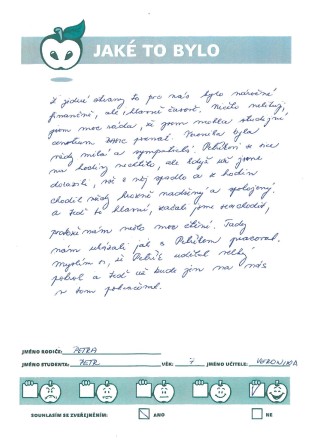 JAKÉ TO BYLO
Z jedné strany to pro nás bylo náročné
finančně, ale hlavně časově. Ničeho nelituji,
jsem moc ráda, že jsem mohla studijní
centrum BASIC poznat. Monika byla
vždy milá a sympatická. Petříkovi se sice
na hodiny nechtělo, ale když už jsme
dorazili, vše z něj spadlo a z hodin
chodil vždy hrozně nadšený a spokojený.
a teď to hlavní, začali jsme se
nám
nám ukázali jak s Petříkem pracovat.
Myslím si, že Petřík udělal velký
pokrok a teď už bude jen na nás
v tom pokračovat.
JMÉNO RODIČE: PETRA
JMÉNO STUDENTA: PETR VĚK: 7 JMÉNO UČITELE: VERONIKA
SOUHLASÍM SE ZVEŘEJNĚNÍM: ANO NE